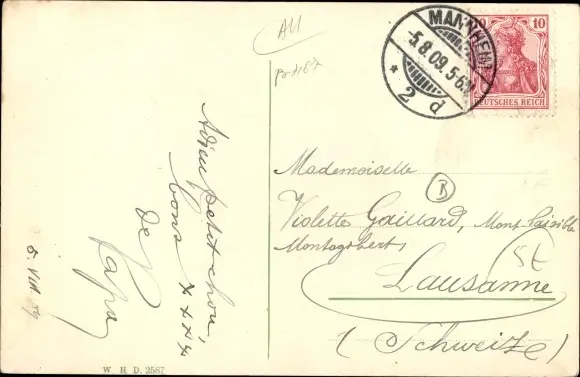 All
MANNHEIM
5.8.09.5-6N
* 2 d
10
DEUTSCHES REICH
Mademoiselle
B
Violette Gaillard, Mont-Paisible
Montagibert,
St
Lausanne
(Schweiz)
Adieu petit chou,
bons x x x x
de
Papa
5. VIII. 09
W. H. D. 2587